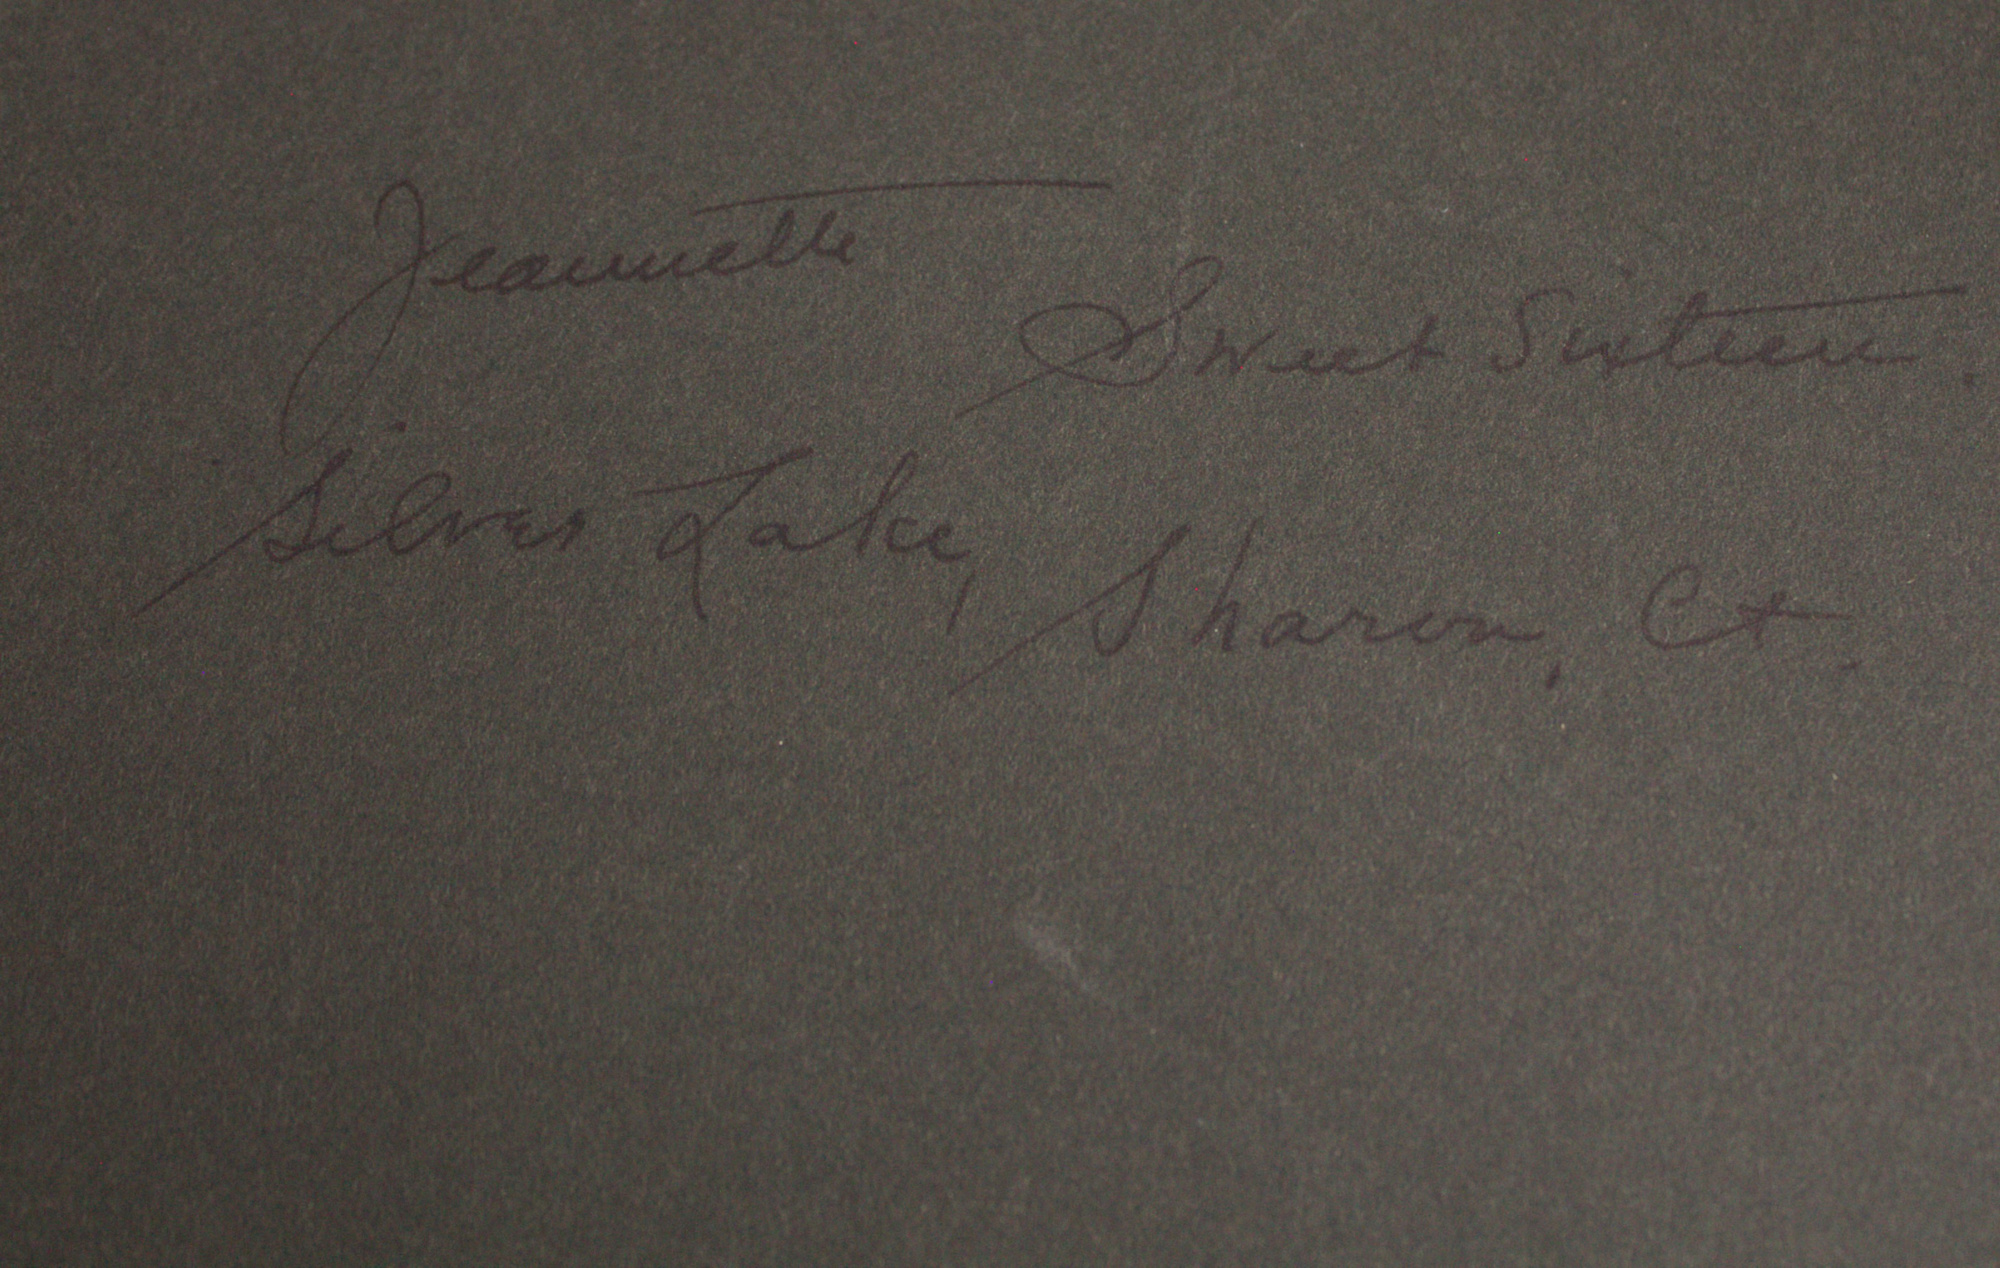 Jeannette
Sweet Sixteen.
Silver Lake,
Sharon, Ct.